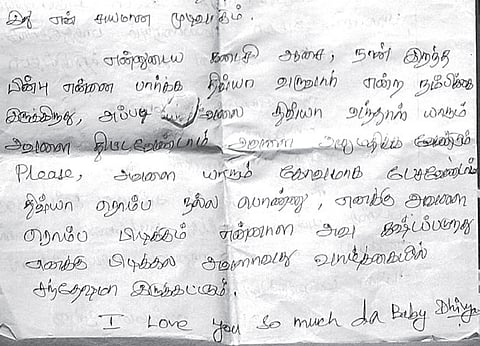 இது என் சுயமான முடிவாகும்.
என்னுடைய கடைசி ஆசை, நான் இறந்த
பின்பு என்னை பார்க்க திவ்யா வருவாள் என்ற நம்பிக்கை
இருக்கிறது, அப்படி திவ்யா வந்தால் யாரும்
அவளை திட்டவேண்டாம் அவளை அனுமதிக்க வேண்டும்
Please, அவளை யாரும் கோவமாக பேசவேண்டாம்
திவ்யா ரொம்ப நல்ல பொண்ணு, எனக்கு அவளை
ரொம்ப பிடிக்கும் என்னால அவ கஷ்டப்படுறது
எனக்கு பிடிக்கல அவளாவது வாழ்க்கையில்
சந்தோஷமா இருக்கட்டும்.
I Love you so much da Baby Dhivya